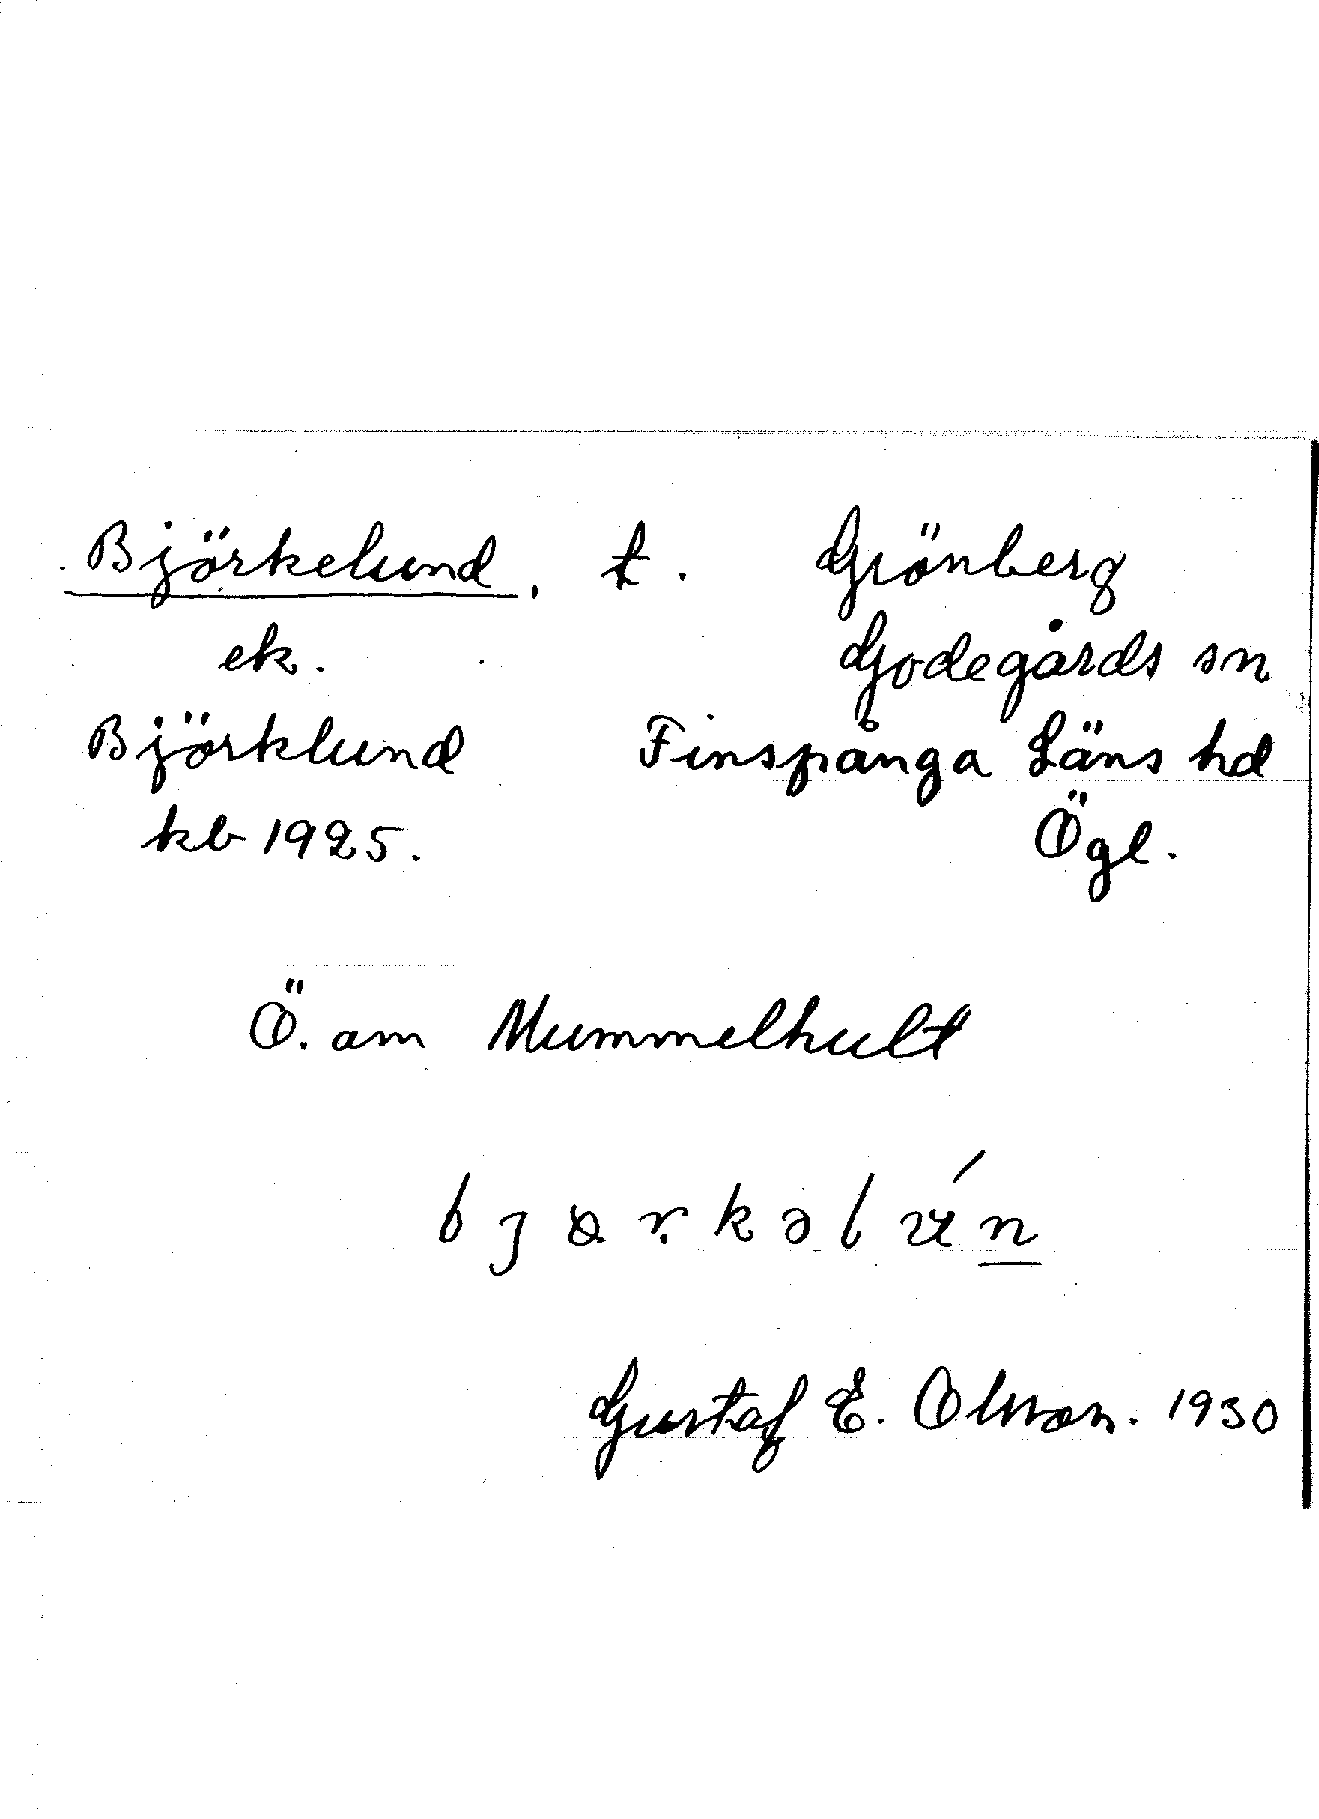 Björkelund, t. Grönberg
ek. Godegårds sn
Björklund Finspånga Läns hd
kb 1925. Ögl.
Ö. om Mummelhult
Gustaf E. Olsson. 1930